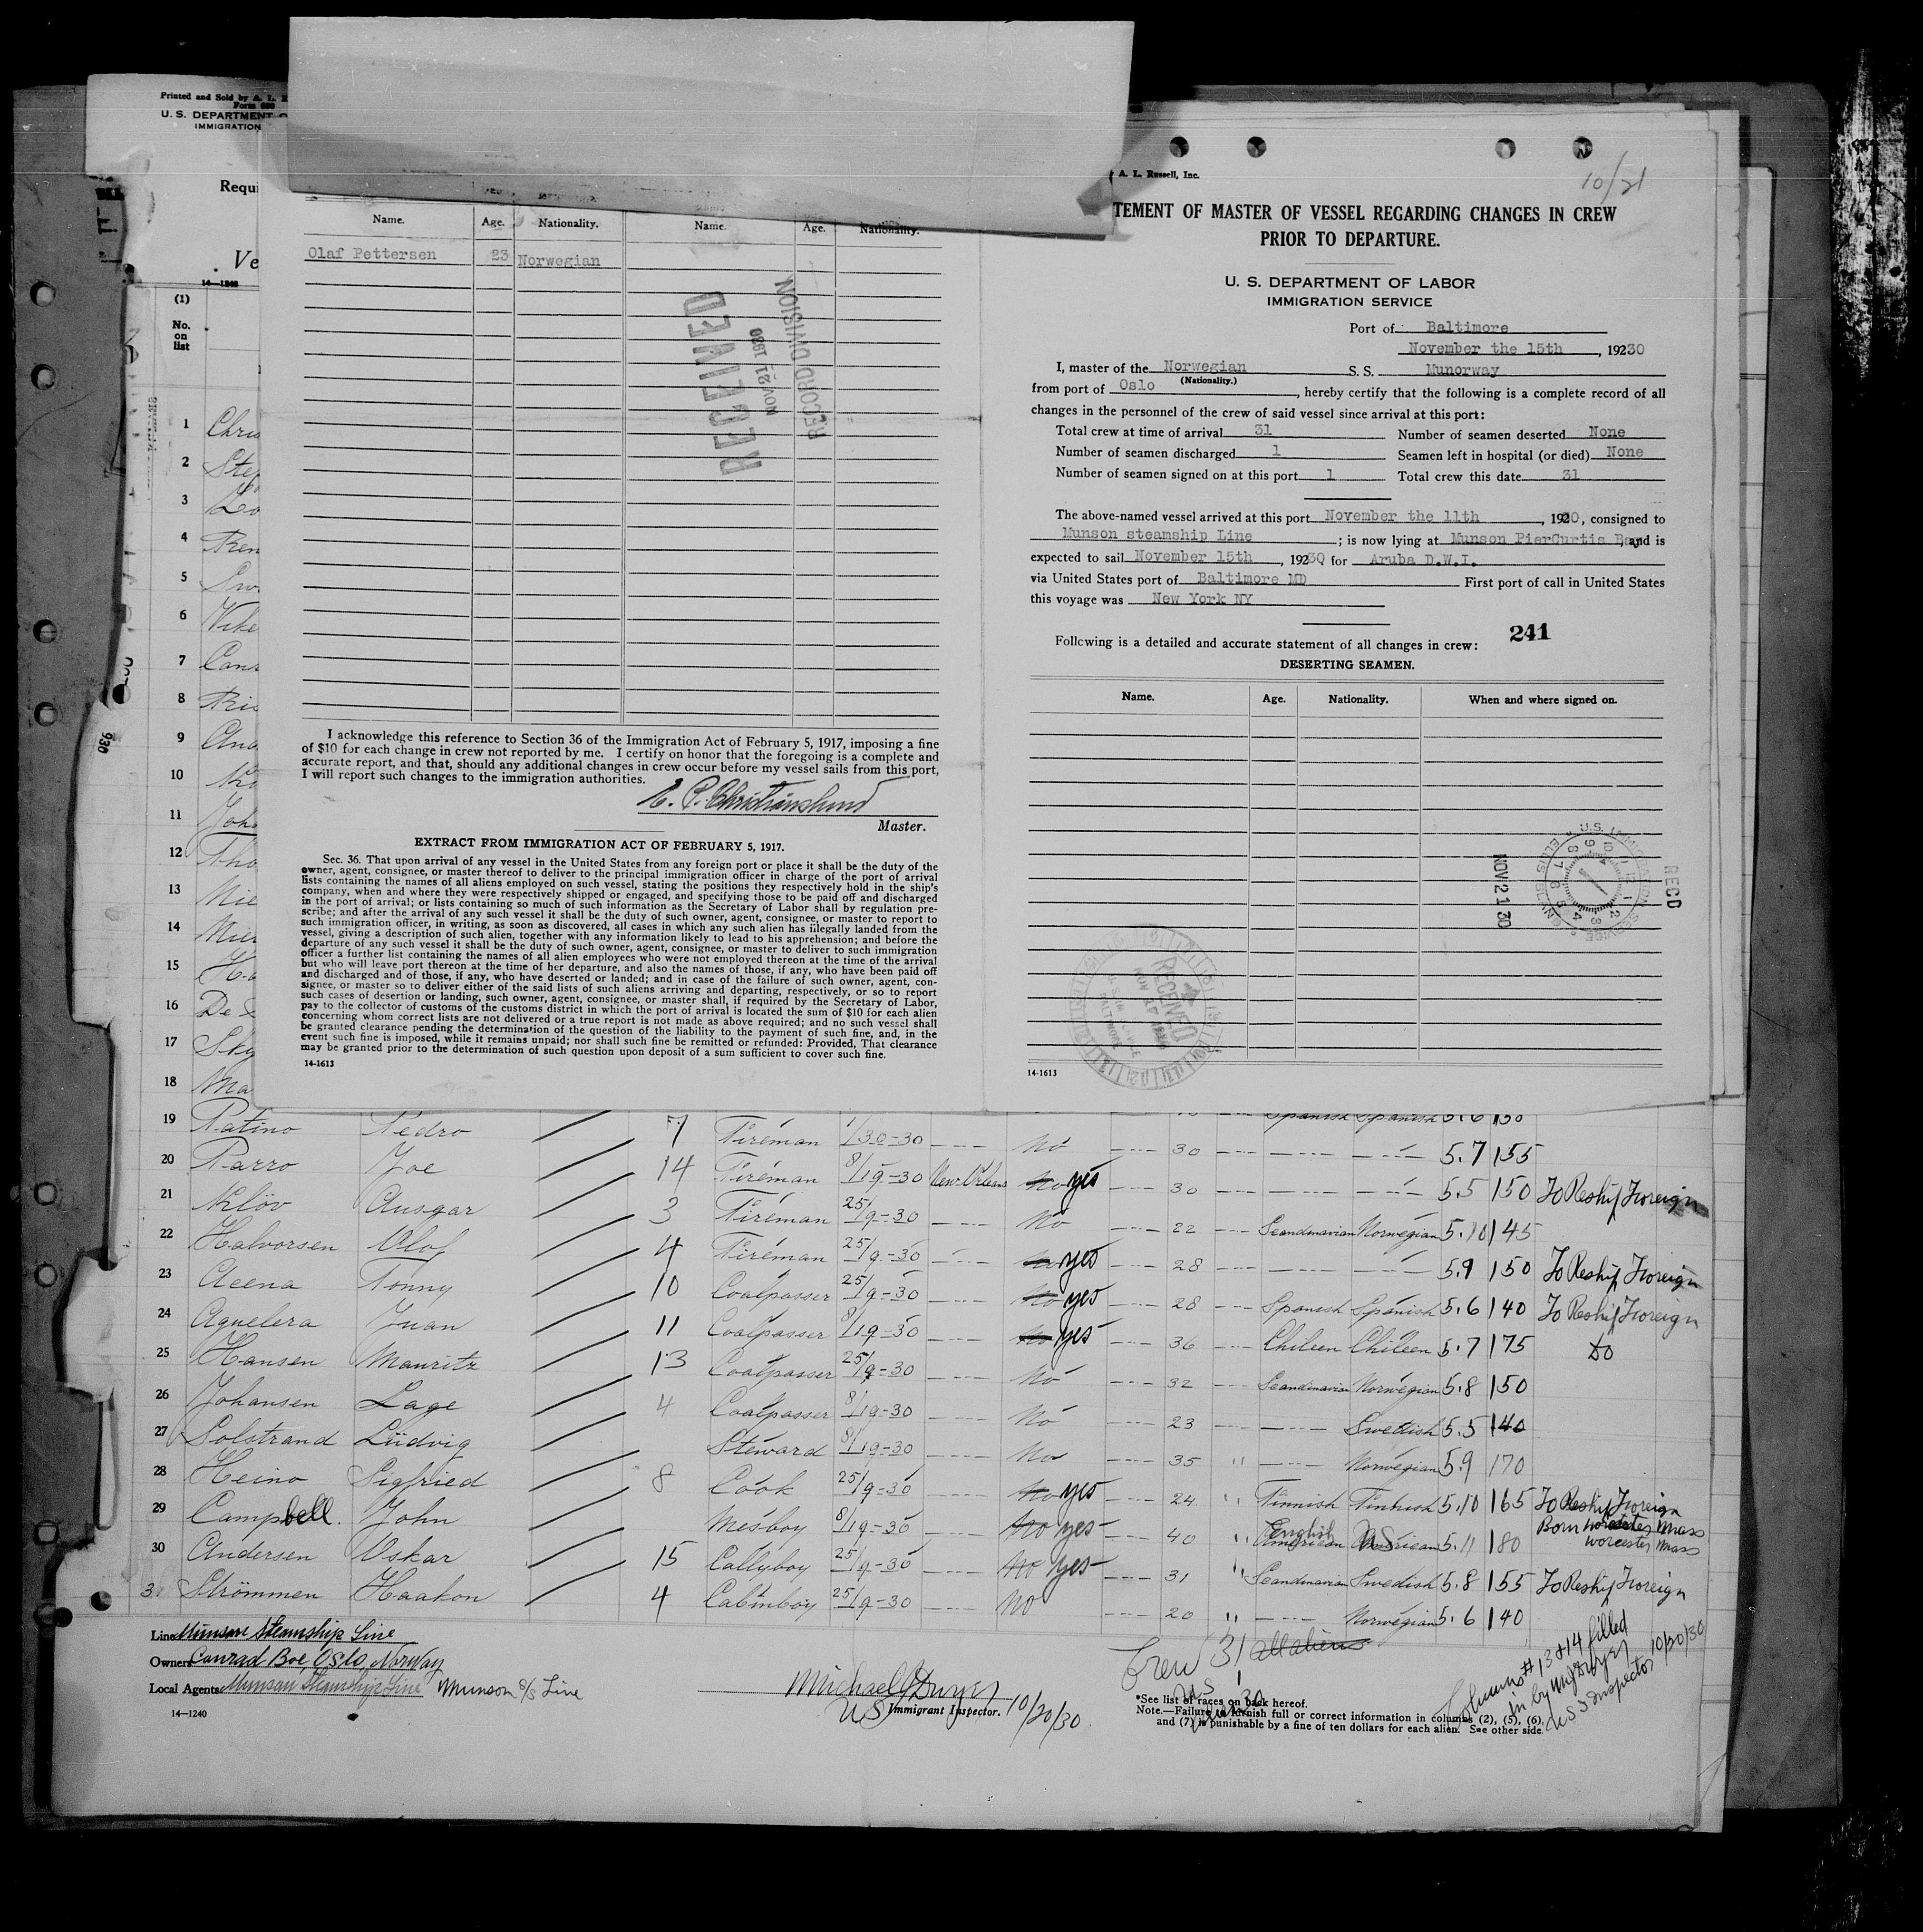 Printed and Sold by A. L.
Form 680
U. S. DEPARTMENT
IMMIGRATION
Requi
Ve
14—1240
(1)
No.
on
list
1 Chris
2 Ste
3 Lo
4
5
6 Vike
7
8
9 And
10
11 Joh
12 Tho
13 Nie
14
15
16 De
17 Sky
18 Ma
Name. Age. Nationality. Name. Age. Nationality.
Olaf Pettersen 23 Norwegian
RECEIVED
NOV 21 1930
RECORD DIVISION
I acknowledge this reference to Section 36 of the Immigration Act of February 5, 1917, imposing a fine
of $10 for each change in crew not reported by me. I certify on honor that the foregoing is a complete and
accurate report, and that, should any additional changes in crew occur before my vessel sails from this port,
I will report such changes to the immigration authorities.
Master.
EXTRACT FROM IMMIGRATION ACT OF FEBRUARY 5, 1917.
Sec. 36. That upon arrival of any vessel in the United States from any foreign port or place it shall be the duty of the
owner, agent, consignee, or master thereof to deliver to the principal immigration officer in charge of the port of arrival
lists containing the names of all aliens employed on such vessel, stating the positions they respectively hold in the ship's
company, when and where they were respectively shipped or engaged, and specifying those to be paid off and discharged
in the port of arrival; or lists containing so much of such information as the Secretary of Labor shall by regulation pre-
scribe; and after the arrival of any such vessel it shall be the duty of such owner, agent, consignee, or master to report to
such immigration officer, in writing, as soon as discovered, all cases in which any such alien has illegally landed from the
vessel, giving a description of such alien, together with any information likely to lead to his apprehension; and before the
departure of any such vessel it shall be the duty of such owner, agent, consignee, or master to deliver to such immigration
officer a further list containing the names of all alien employees who were not employed thereon at the time of the arrival
but who will leave port thereon at the time of her departure, and also the names of those, if any, who have been paid off
and discharged and of those, if any, who have deserted or landed; and in case of the failure of such owner, agent, con-
signee, or master so to deliver either of the said lists of such aliens arriving and departing, respectively, or so to report
such cases of desertion or landing, such owner, agent, consignee, or master shall, if required by the Secretary of Labor,
pay to the collector of customs of the customs district in which the port of arrival is located the sum of $10 for each alien
concerning whom correct lists are not delivered or a true report is not made as above required; and no such vessel shall
be granted clearance pending the determination of the question of the liability to the payment of such fine, and, in the
event such fine is imposed, while it remains unpaid; nor shall such fine be remitted or refunded: Provided, That clearance
may be granted prior to the determination of such question upon deposit of a sum sufficient to cover such fine.
14-1613
A. L. Russell, Inc.
10/21
TEMENT OF MASTER OF VESSEL REGARDING CHANGES IN CREW
PRIOR TO DEPARTURE.
U. S. DEPARTMENT OF LABOR
IMMIGRATION SERVICE
Port of Baltimore
November the 15th, 19230
I, master of the Norwegian S. S. Munorway
(Nationality.)
from port of Oslo, hereby certify that the following is a complete record of all
changes in the personnel of the crew of said vessel since arrival at this port:
Total crew at time of arrival 31 Number of seamen deserted None
Number of seamen discharged 1 Seamen left in hospital (or died) None
Number of seamen signed on at this port 1 Total crew this date 31
The above-named vessel arrived at this port November the 11th, 1920, consigned to
Munson steamship Line; is now lying at Munson PierCurtis Bay, and is
expected to sail November 15th, 19230 for Aruba D.W.I.
via United States port of Baltimore MD First port of call in United States
this voyage was New York NY
241
Following is a detailed and accurate statement of all changes in crew:
DESERTING SEAMEN.
Name. Age. Nationality. When and where signed on.
U.S. IMMIGRATION SERVICE
NOV 21 30
RECD
RECEIVED
14-1613
Spanish Spanish 5.6 150
19 Patino Pedro 7 Fireman 1/30-30 No 30 5.7 155
20 Parro Joe 14 Fireman 8/19-30 New Orleans No yes 30 5.5 150 To Reship Foreign
21 Klöv Ausgar 3 Fireman 25/9-30 No 22 Scandinavian Norwegian 5.10 145
22 Halvorsen Olof 4 Fireman 25/9-30 No yes 28 5.9 150 To Reship Foreign
23 Aeena Tonny 10 Coalpasser 25/9-30 No yes 28 Spanish Spanish 5.6 140 To Reship Foreign
24 Aguelera Juan 11 Coalpasser 8/19-30 No yes 36 Chileen Chileen 5.7 175 Do
25 Hansen Mauritz 13 Coalpasser 25/9-30 No 32 Scandinavian Norwegian 5.8 150
26 Johansen Lage 4 Coalpasser 8/19-30 No 23 Swedish 5.5 140
27 Solstrand Lüdvig Steward 8/19-30 No 35 " Norwegian 5.9 170
28 Heino Sigfried 8 Cook 25/9-30 No yes 24 " Finnish Finnish 5.10 165 To Reship Foreign
29 Campbell. John Mesboy 8/19-30 No yes 40 " English American US American 5.11 180 Born Worcester Mass
Worcester Mass
30 Andersen Oskar 15 Gallyboy 25/9-30 No yes 31 " Scandinavian Swedish 5.8 155 To Reship Foreign
3 Strömmen Haakon 4 Cabinboy 25/9-30 No 20 " Norwegian 5.6 140
Line Munson Steamship Line
Owners Conrad Boe, Oslo, Norway
Local Agents Munson Steamship Line Munson S/S Line
14—1240
Michael J Dwyer
US Immigrant Inspector. 10/20/30
Crew 31 all aliens
US 1
*See list of races on back hereof.
Note.—Failure to furnish full or correct information in columns (2), (5), (6),
and (7) is punishable by a fine of ten dollars for each alien. See other side.
Columns # 13 & 14 filled
in by MJ Dwyer
US Inspector 10/20/30